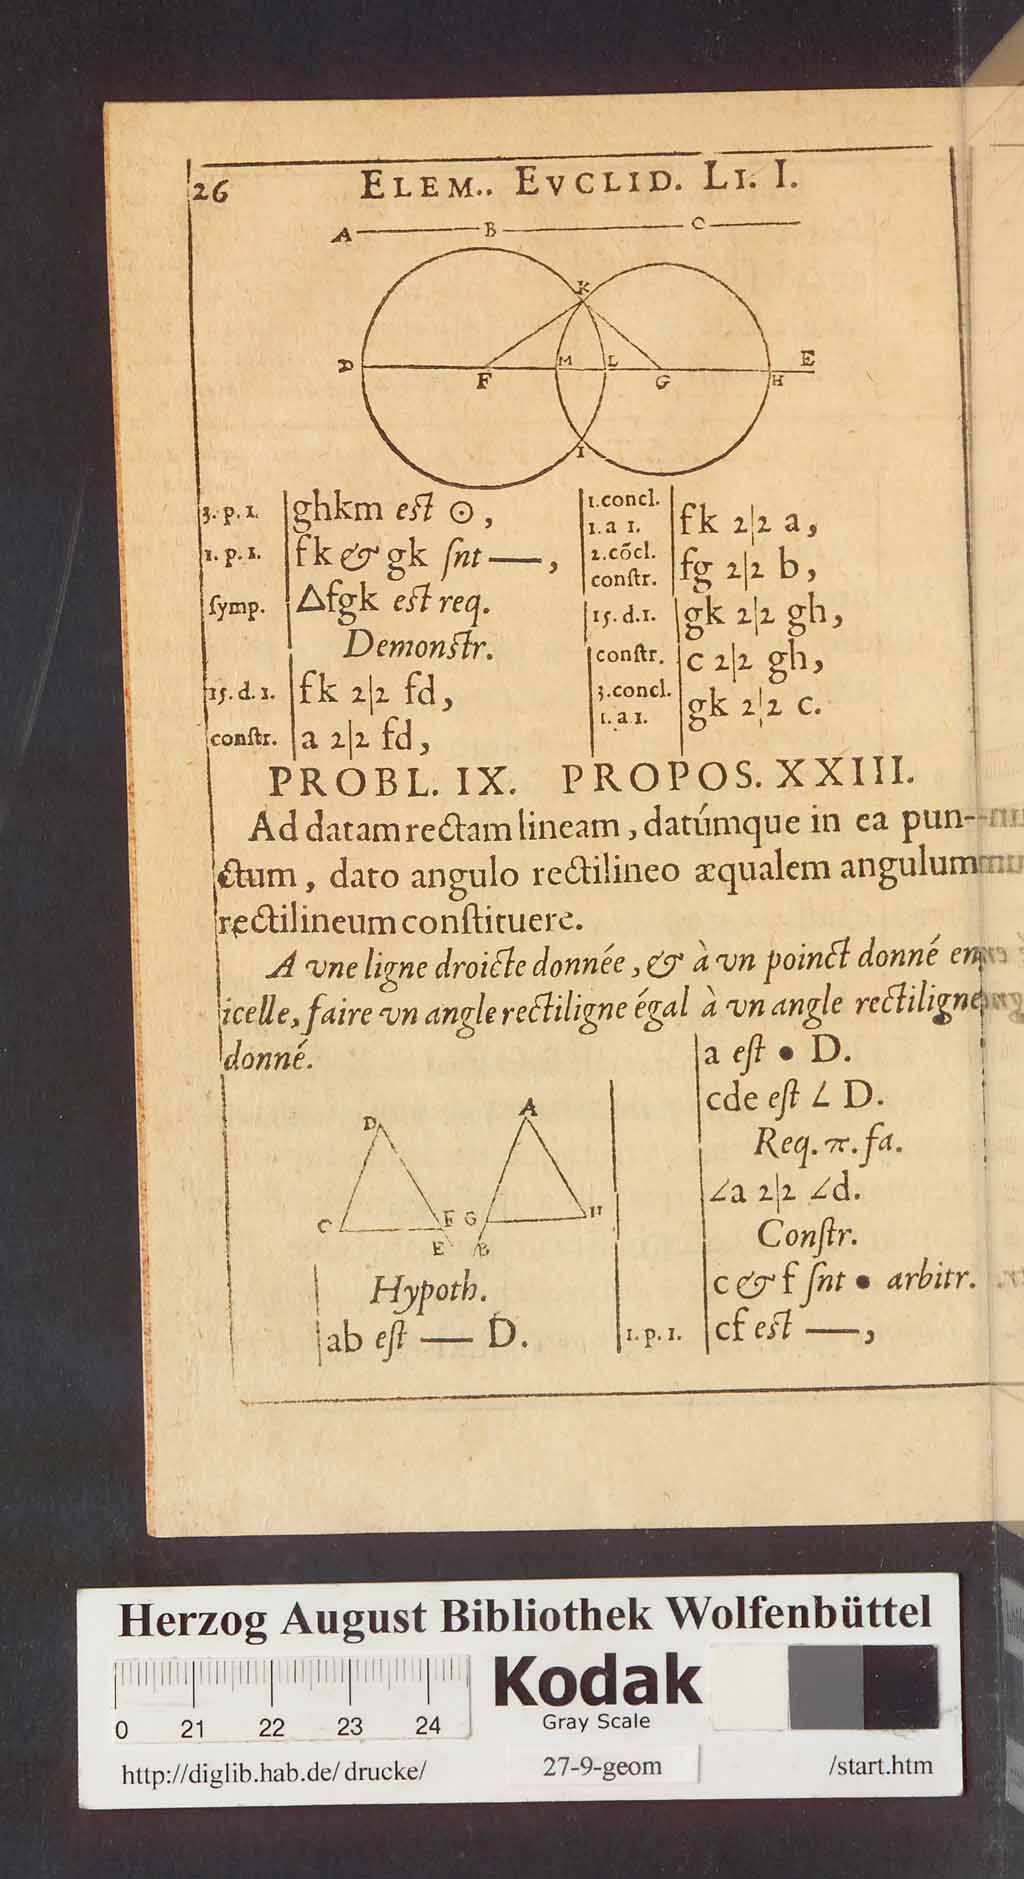 26
ELEM.. EVCLID. LI. I.
A B C
K
D F M L G H E
I
3. p. 1. ghkm est ⊙,
1. p. 1. fk & gk ſnt —,
ſymp. △fgk est req.
Demonstr.
15. d. 1. fk 2|2 fd,
constr. a 2|2 fd,
1.concl.
1. a 1. fk 2|2 a,
2.cōcl.
constr. fg 2|2 b,
15. d.1. gk 2|2 gh,
constr. c 2|2 gh,
3.concl.
1. a 1. gk 2|2 c.
PROBL. IX. PROPOS. XXIII.
Ad datam rectam lineam, datúmque in ea pun-
ctum, dato angulo rectilineo æqualem angulum
rectilineum conſtituere.
A vne ligne droicte donnée, & à vn poinct donné en
icelle, faire vn angle rectiligne égal à vn angle rectiligne
donné.
D A
C F G H
E B
Hypoth.
ab eſt — D.
a eſt • D.
cde eſt ∠ D.
Req. π. fa.
∠a 2|2 ∠d.
Conſtr.
c & f ſnt • arbitr.
1. p. 1. cf est —,
Herzog August Bibliothek Wolfenbüttel
0 21 22 23 24
Kodak
Gray Scale
http://diglib.hab.de/ drucke/ 27-9-geom /start.htm